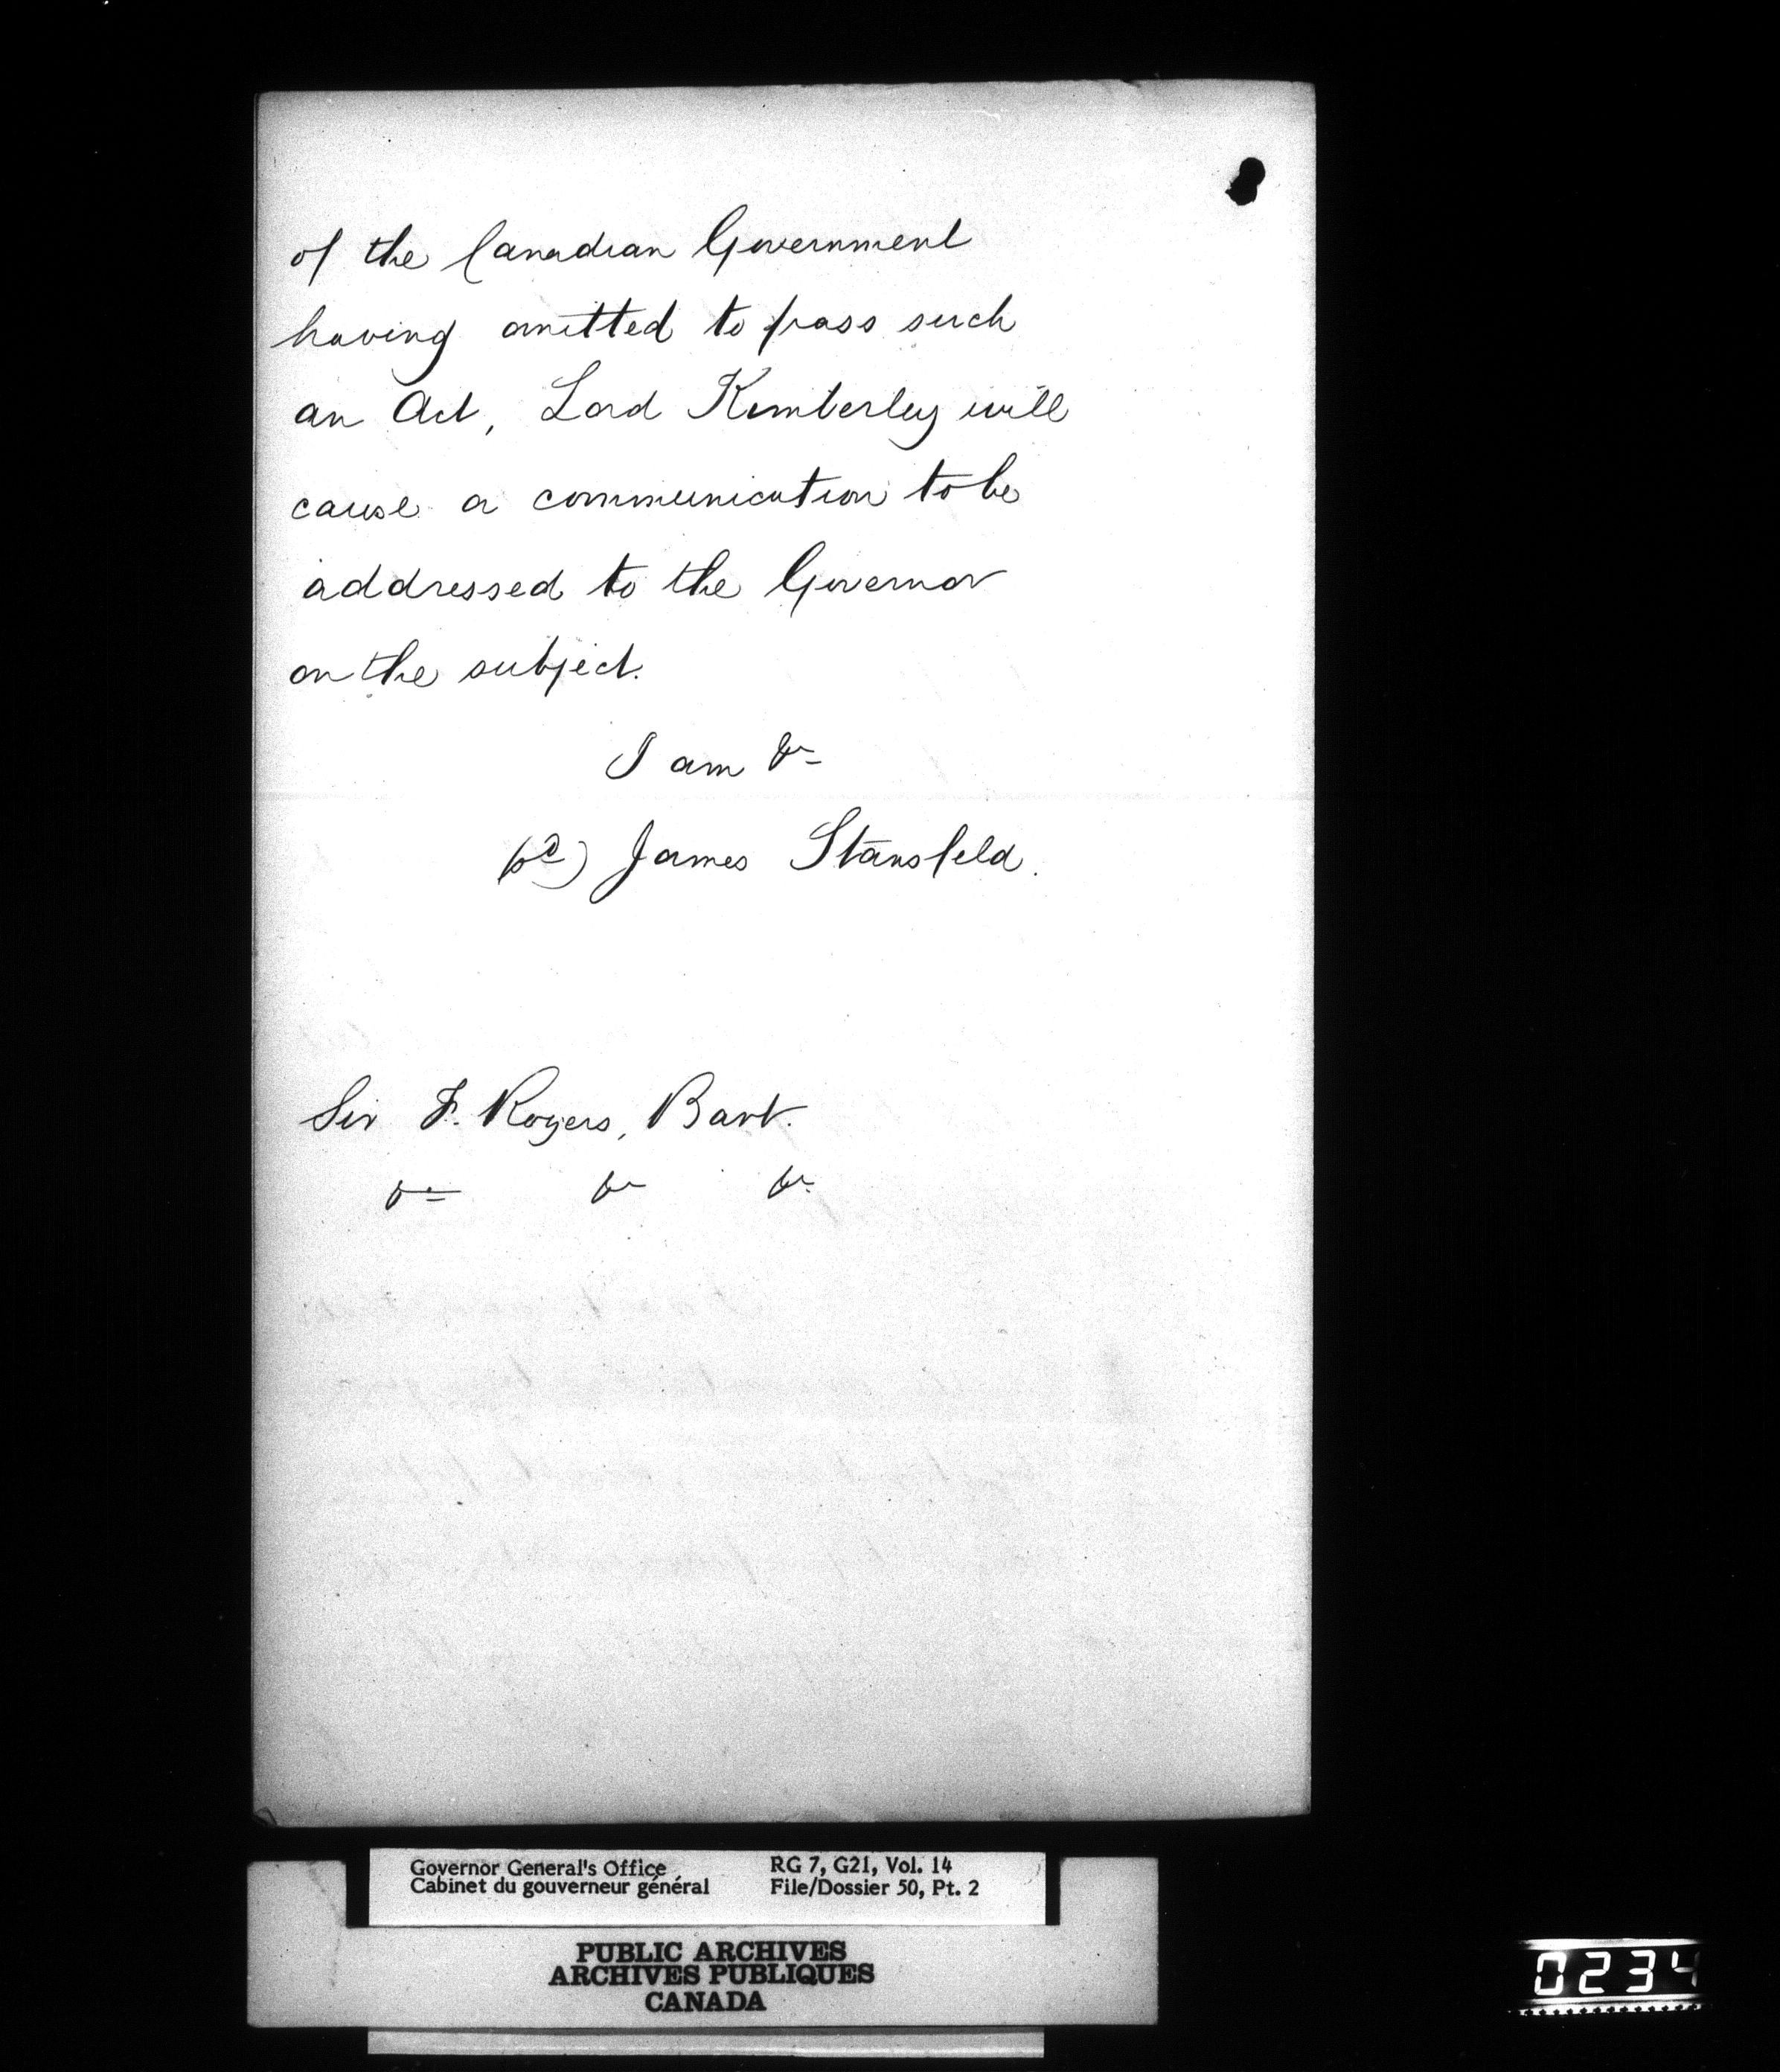 of the Canadian Government
having omitted to pass such
an Act, Lord Kimberley will
cause a communication to be
addressed to the Governor
on the subject.
I am &c
(sd) James Stansfeld.
Sir F. Rogers, Bart.
&c &c &c
Governor General's Office
Cabinet du gouverneur général
RG 7, G21, Vol. 14
File/Dossier 50, Pt. 2
PUBLIC ARCHIVES
ARCHIVES PUBLIQUES
CANADA
0234